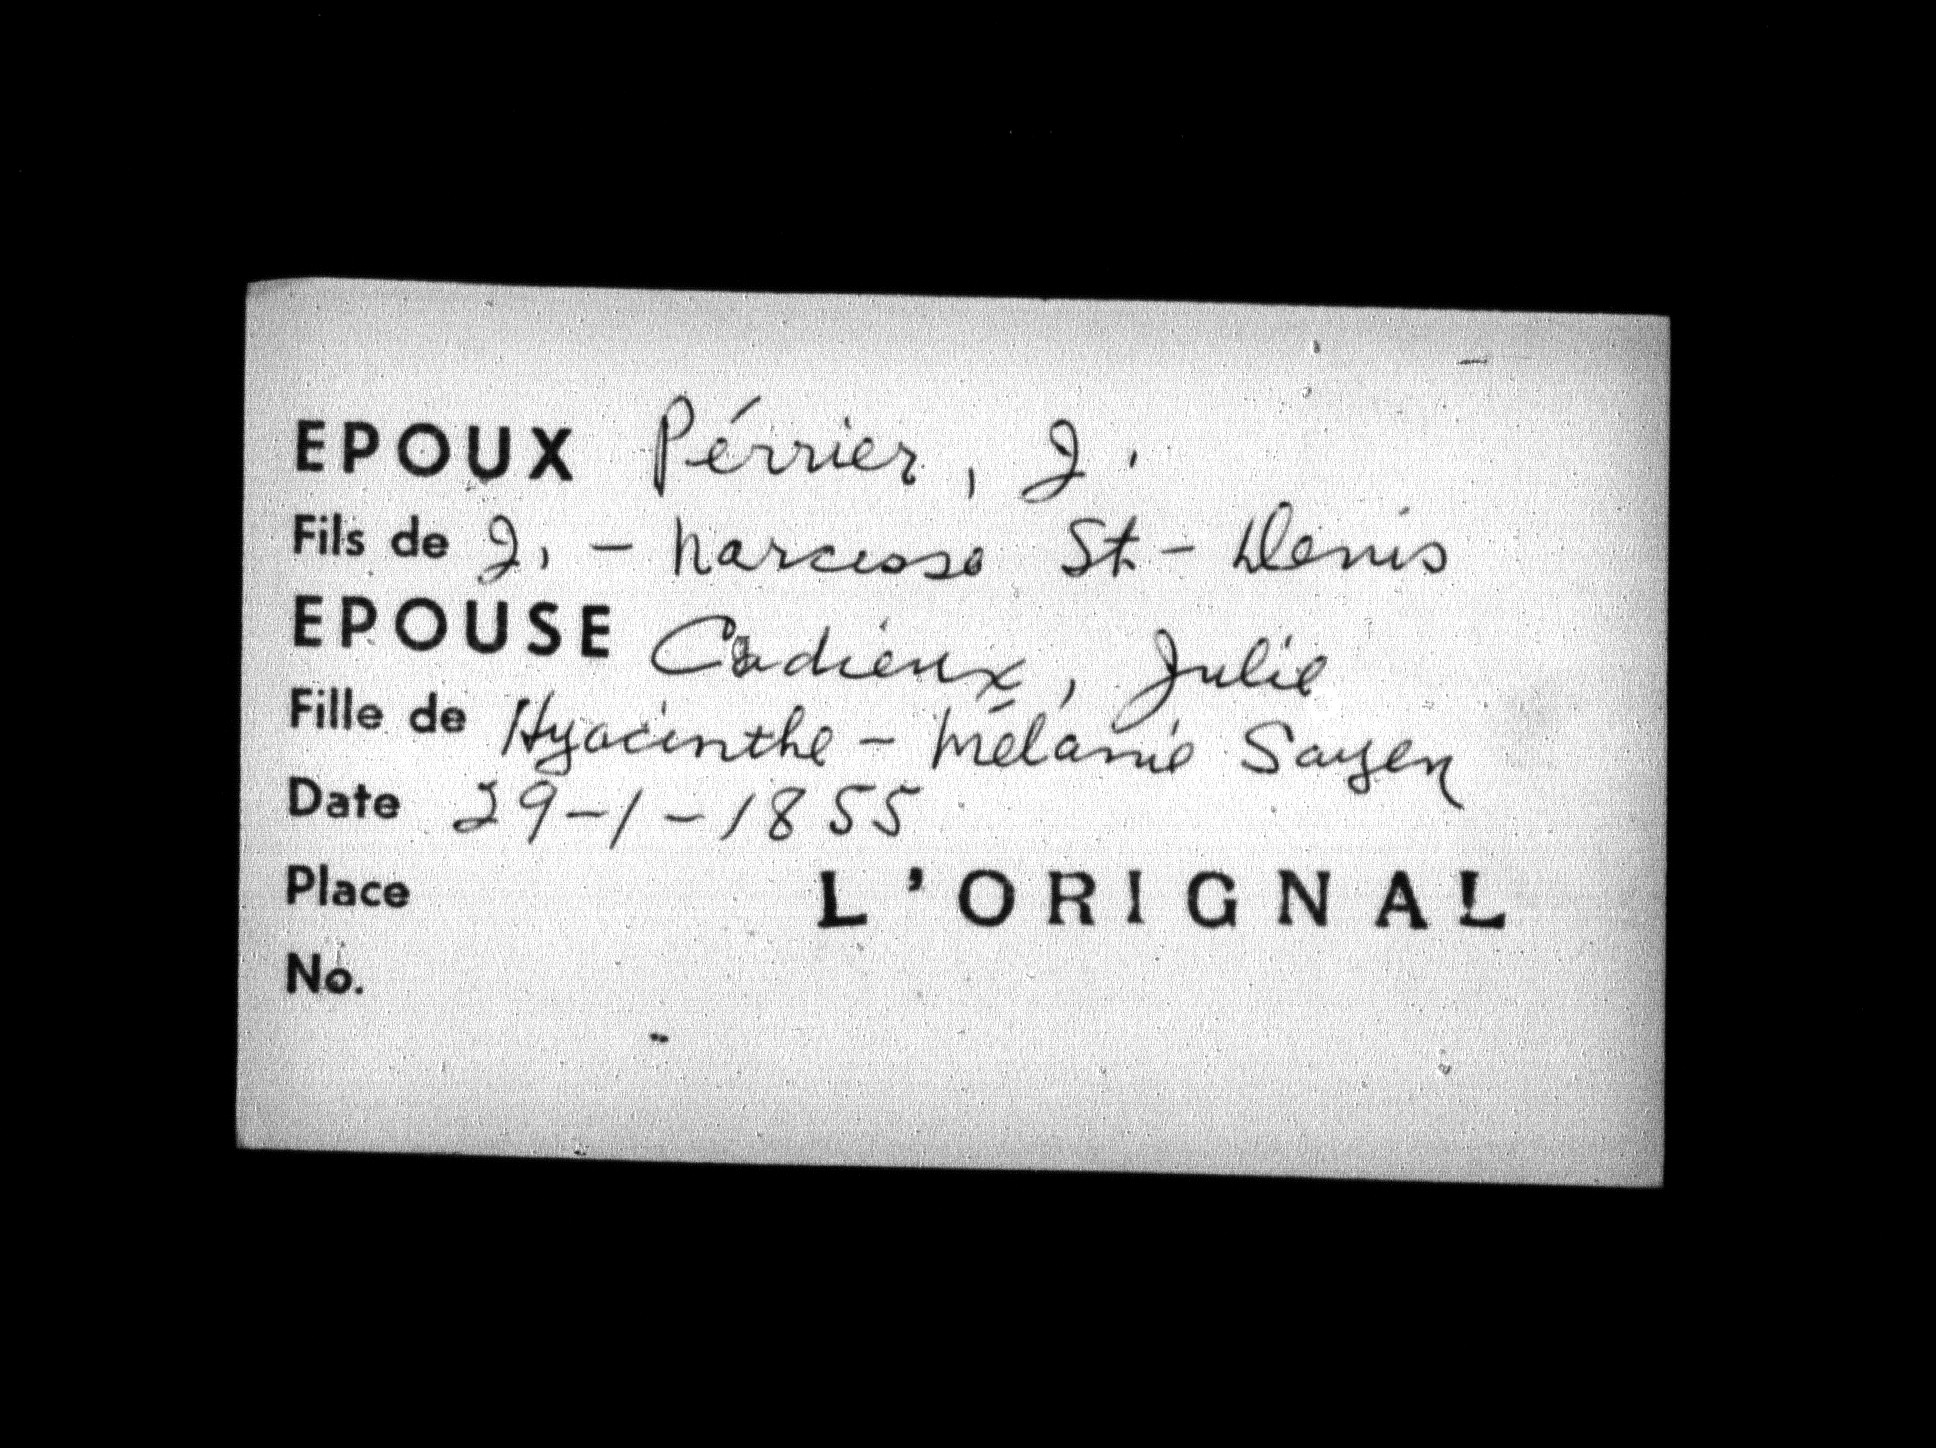 EPOUX Pérrier, J.
Fils de J. - Narcisse St-Denis
EPOUSE Cadieux, Julie
Fille de Hyacinthe - Mélanie Sayen
Date 29-1-1855
Place L'ORIGNAL
No.